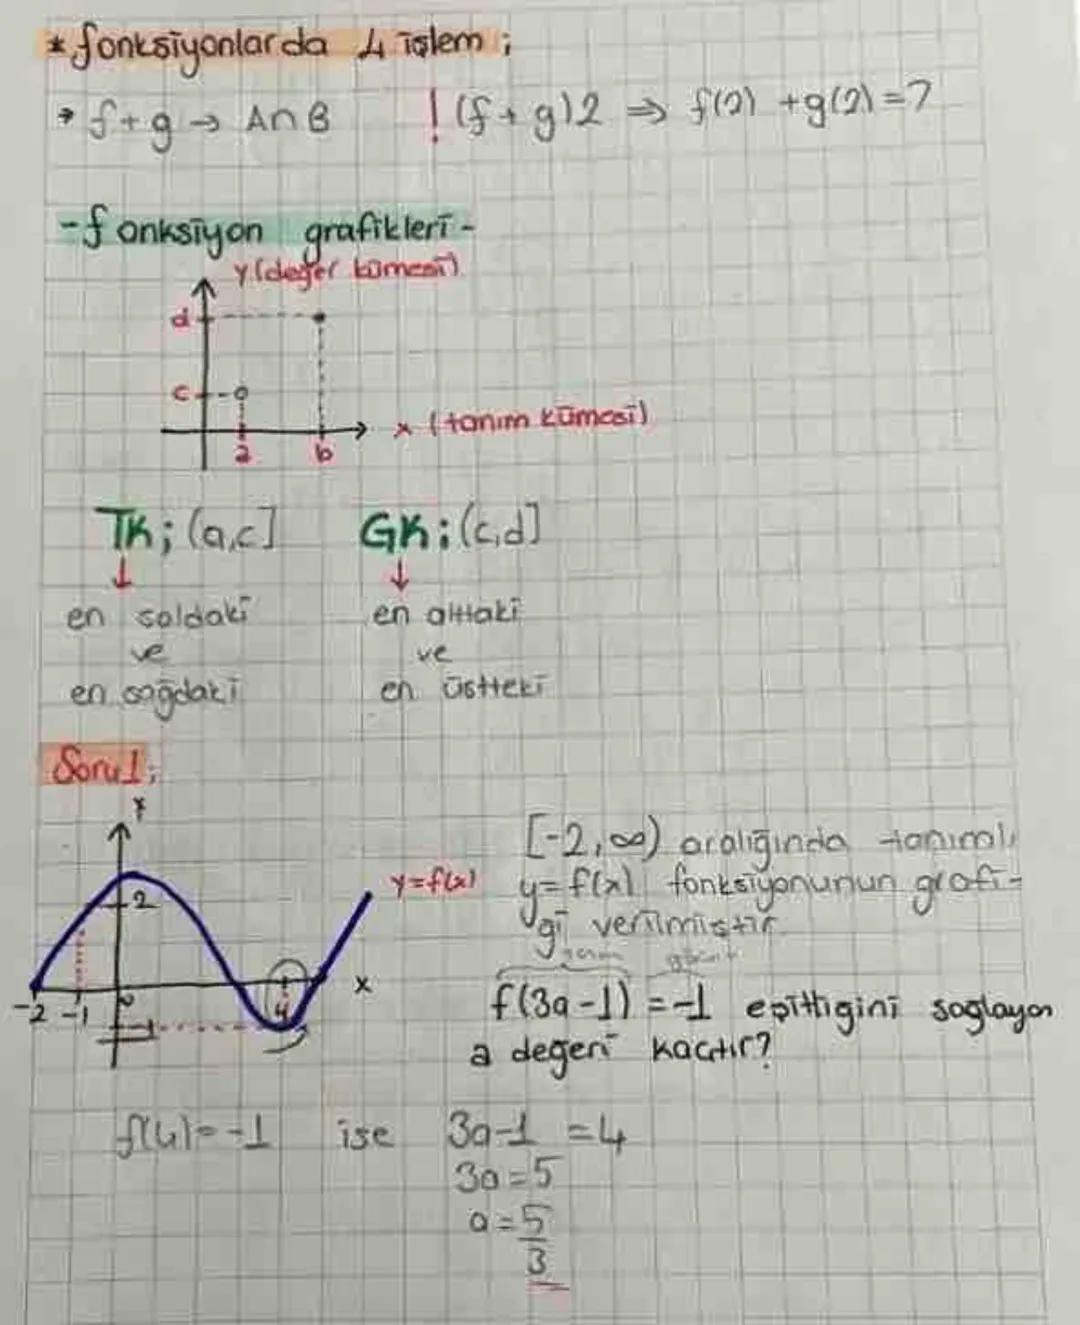 * fonksiyonlarda 4 işlem ;
→ f+g → A∩B ! (f+g)2 ⇒ f(2) +g(2)=7
- fonksiyon grafikleri -
y (değer kümesi)
d
c
x (tanım kümesi)
a b
TK; (a,c] GK: (c,d]
↓ ↓
en soldaki en alttaki
ve ve
en sağdaki en üstteki
Soru1;
y
[-2,∞) aralığında tanımlı
y=f(x) y=f(x) fonksiyonunun grafi-
2
ği verilmiştir.
x
tanım görüntü
-2 -1 0 4 f(3a-1) = -1 eşitliğini sağlayan
-1
a değeri kaçtır?
f(4)=-1 ise 3a-1 =4
3a=5
a=5
3